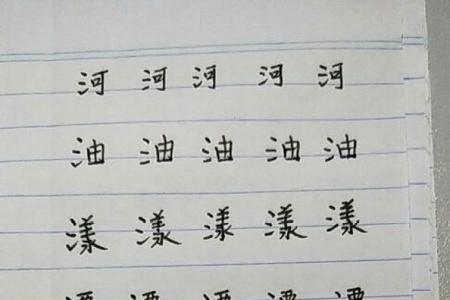 河 河 河 河 河
油 油 油 油 油
漾 漾 漾 漾 漾